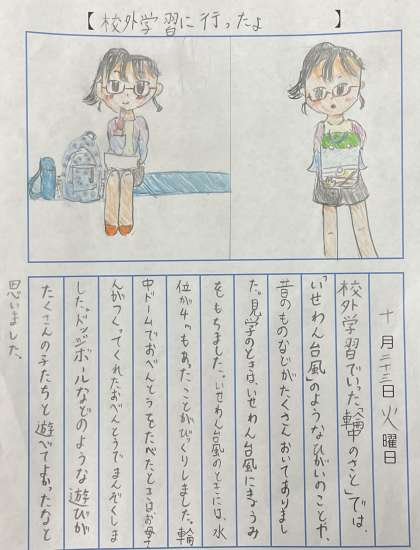 【校外学習に行ったよ】
十月二十三日火曜日
校外学習でいった「輪中のさと」では、
「いせわん台風」のようなひがいのことや、
昔のものなどがたくさんおいてありまし
た。見学のときは、いせわん台風にきょうみ
をもちました。いせわん台風のときには、水
位が4mもあったことがびっくりしました。輪
中ドームでおべんとうをたべたときはお母さ
んがつくってくれたおべんとうでまんぞくしま
した。ドッジボールなどのような遊びが
たくさんの子たちと遊べてよかったなと
思いました。